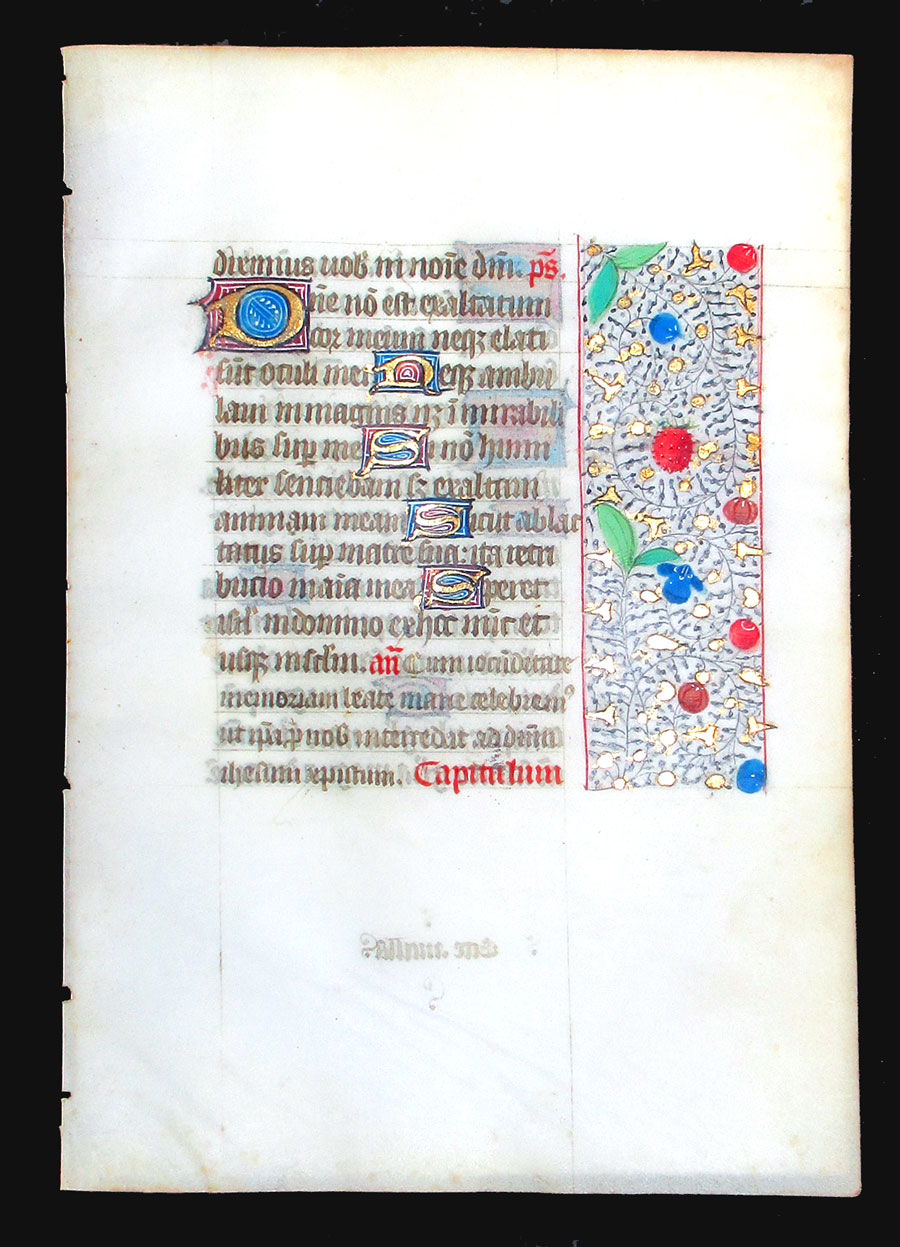 diximus uob̄ in noīe dn̄i. ps̄.
Dn̄e nō est exaltatum
cor meum neqꝫ elati
sūt oculi mei Neqꝫ ambu
laui in magnis nꝫ ī mirabili
bus sup̄ me Si nō humi
liter sentiebam sꝫ exaltaui
animam meam Sicut ablac
tatus sup̄ matre sua: ita retri
butio in aīa mea Speret
isrl̄ in domino ex hoc nūc et
usqꝫ in sclm̄. an̄ Cum iocūditate
memoriam beate marie celebrem⁹
ut ip̄a p̄ nob̄ intercedat ad dn̄m
ihesum xpistum. Capitulum